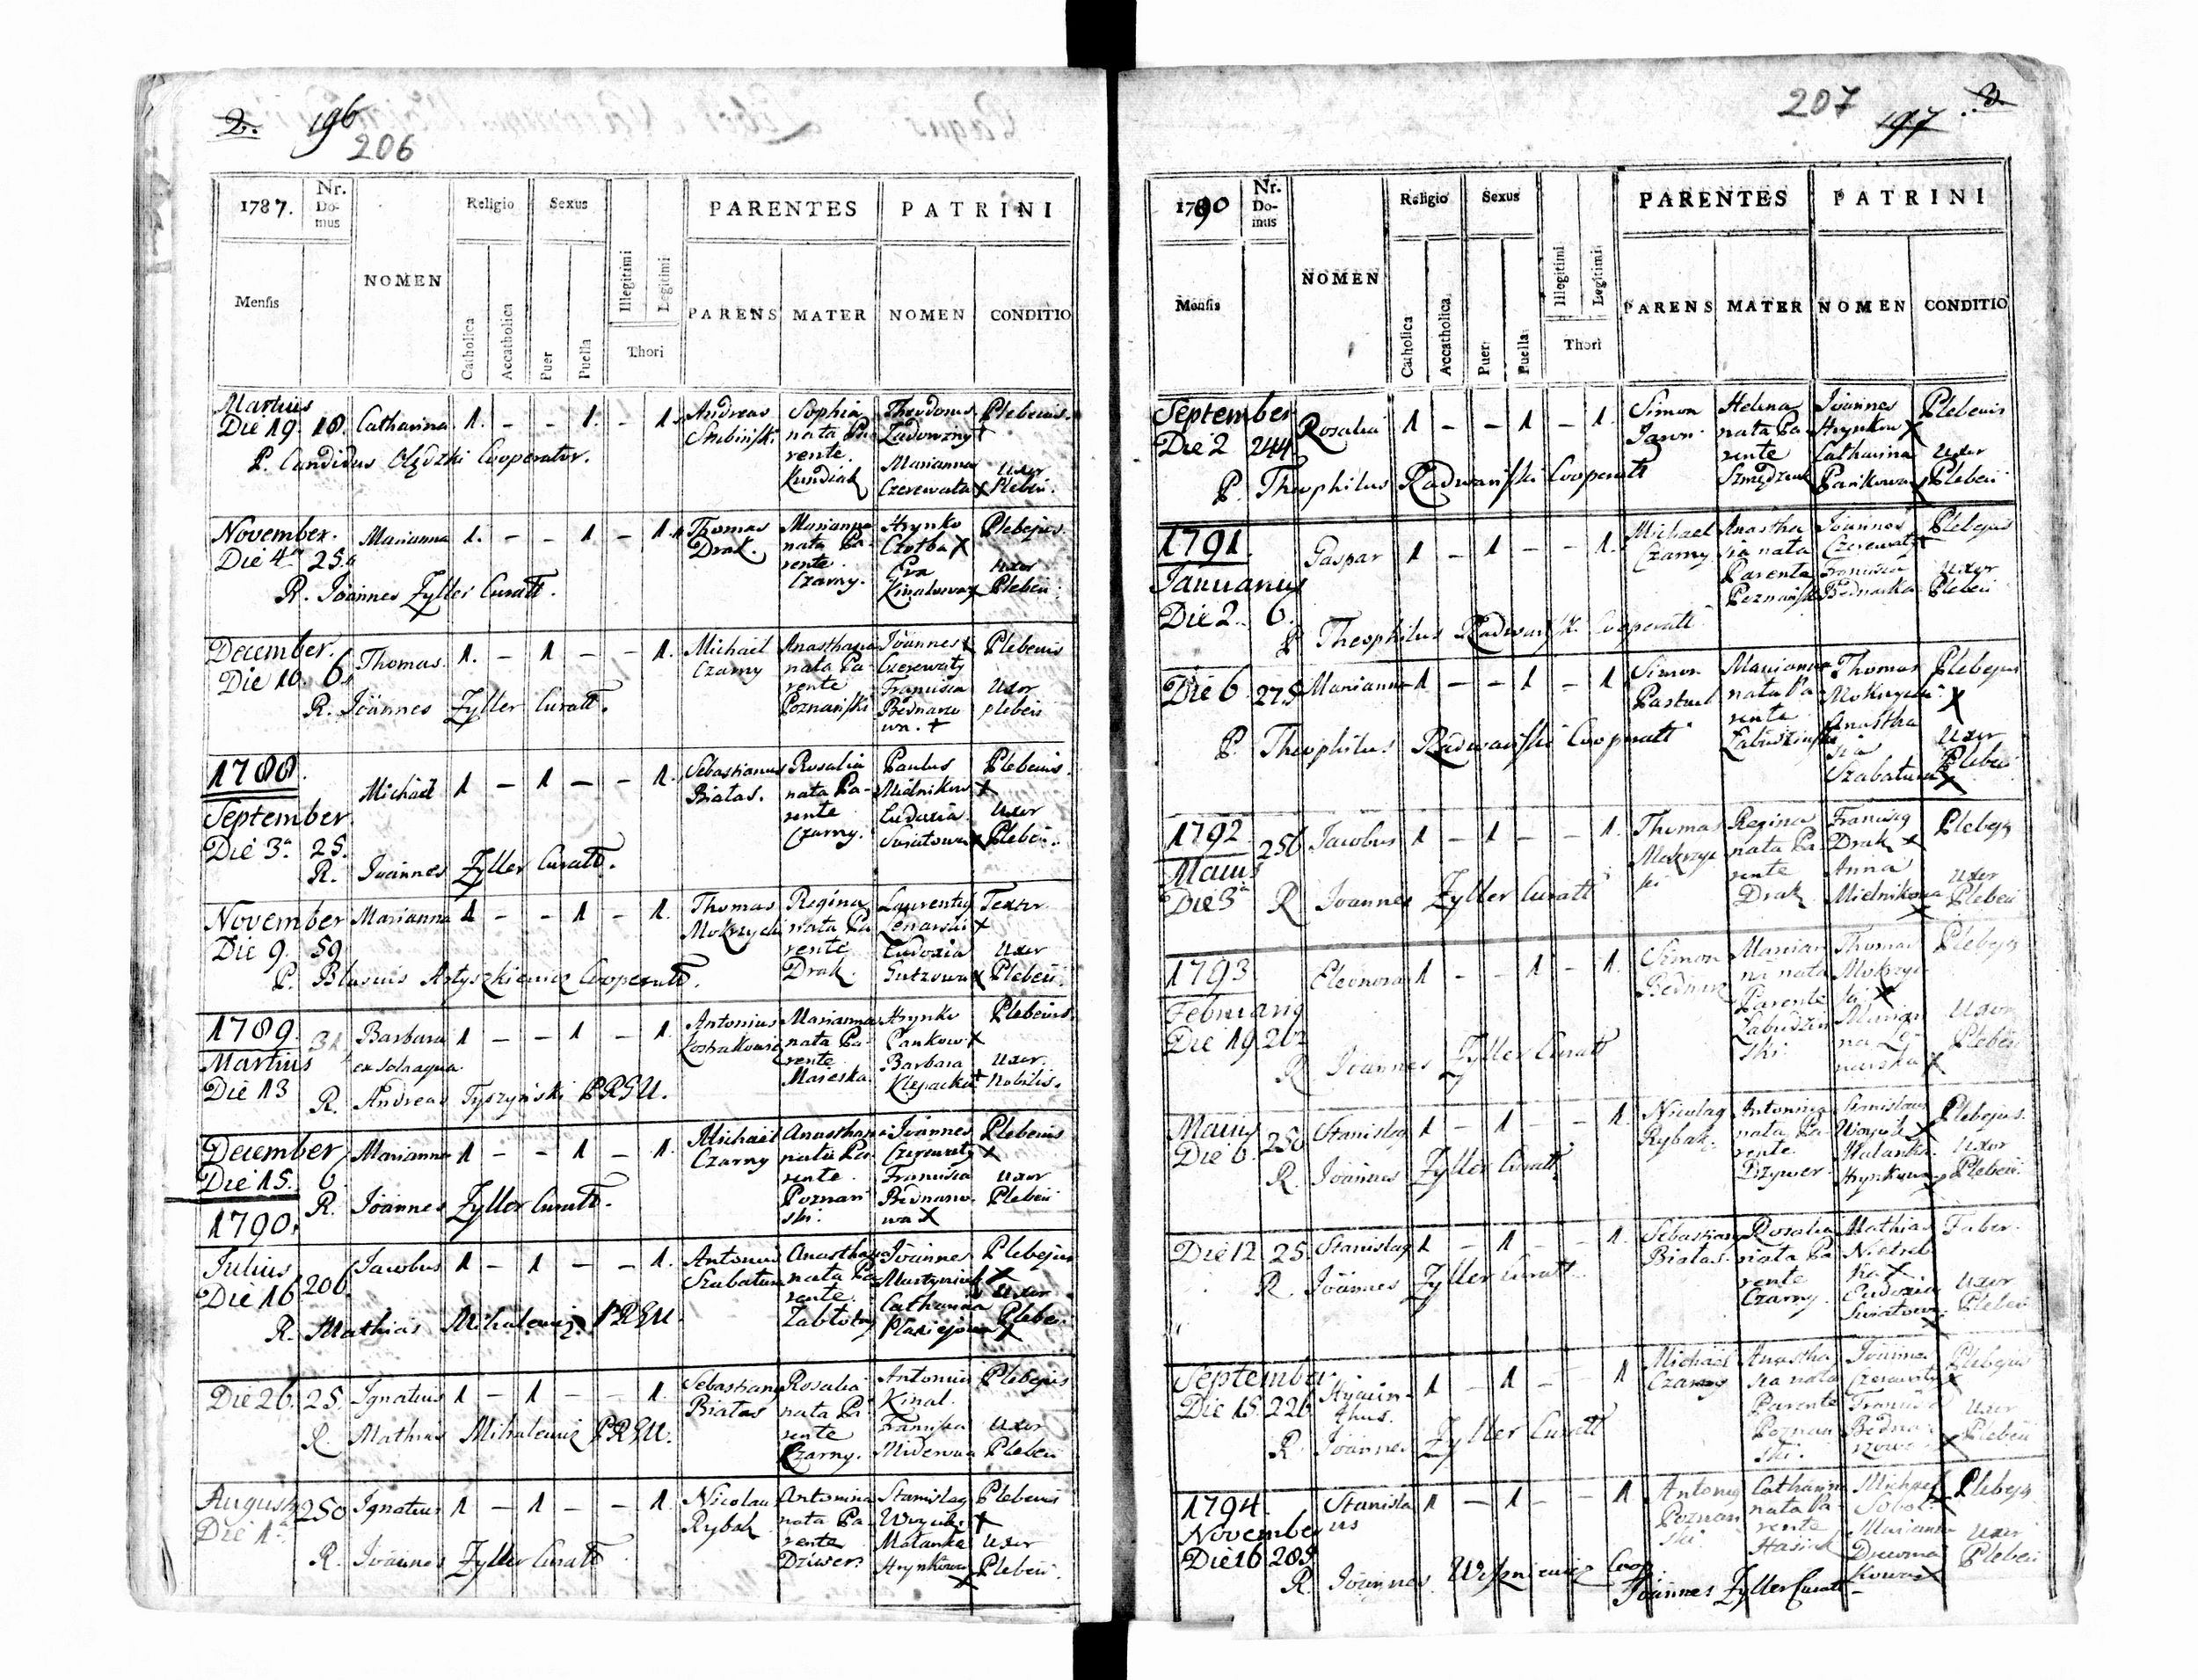 2. 196
206
1787. Nr. Domus NOMEN Religio Sexus Illegitimi Legitimi PARENTES PATRINI
Mensis Catholica Accatholica Puer Puella Thori PARENS MATER NOMEN CONDITIO
Martius
Die 19. 18. Catharina 1. - - 1. - 1. Andreas Sophia nata Parente Kundiak Theodorus + Plebeius.
Marianna Czerewata X Uxor Plebei.
P. Candidus Olędzki Cooperator.
November.
Die 4ta 25. Marianna 1. - - 1 - 1. Thomas Drak. Marianna nata Parente Czarny. Hrynko X Plebejus.
Eva Kinalowa X Uxor Plebei.
R. Joannes Zyller Curatt.
December.
Die 10. 6. Thomas 1. - 1 - - 1. Michael Czarny Anasthasia nata Parente Poznański Joannes + Czerewaty Plebeius
Francisca Bednarzowa. + Uxor plebeii
R. Joannes Zyller Curatt.
1788.
September.
Die 3a 25. Michael 1 - 1 - - 1. Sebastianus Białas. Rosalia nata Parente Czarny. Paulus Mielnikow X Plebeius.
Eudoxia X Uxor Plebeii.
R. Joannes Zyller Curatt.
November
Die 9. 59 Marianna 1 - - 1 - 1. Thomas Mokrzycki Regina nata Parente Drak. Laurentius Lenarski X Textor.
Eudoxia X Uxor Plebeii.
P. Blasius Artyszkiewicz Cooperatt.
1789.
Martius
Die 13 31 Barbara 1 - - 1 - 1. Antonius Marianna nata Parente Mareska. Hrynko Pankow X Plebeius.
Barbara Klepacka + Uxor. Nobilis.
R. Andreas Tyszyński PRSU.
December
Die 15. 6. Marianna 1 - - 1 - 1. Michael Czarny Anasthasia nata Parente Poznański. Joannes Czerewaty X Plebeius
Francisca Bednarzowa X Uxor Plebeii
R. Joannes Zyller Curatt.
1790.
Julius
Die 16 206. Jacobus 1 - 1 - - 1. Antonius Szabatura Anasthasia nata Parente. Joannes X Plebejus
Catharina X Uxor Plebei.
R. Mathias Mihalewicz PRSU.
Die 26. 25. Ignatius 1 - 1 - - 1. Sebastianus Białas Rosalia nata Parente Czarny. Antonius Kinal. Plebejus
Uxor Plebeii
R. Mathias Mihalewicz PRSU.
Augustus
Die 1a 250 Ignatius 1 - 1 - - 1. Nicolaus Rybak Antonina nata Parente Dziwer. Stanislaus + Plebeius
Malanka Hrynkowa X Uxor Plebeii.
R. Joannes Zyller Curatt
207
197 3
1790 Nr. Domus NOMEN Religio Sexus Illegitimi Legitimi PARENTES PATRINI
Mensis Catholica Accatholica Puer Puella Thori PARENS MATER NOMEN CONDITIO
September
Die 2 244 Rosalia 1 - - 1 - 1. Simon Helena nata Parente Joannes Hrynkow X Plebeius
Catharina Pankowa X Uxor Plebeii
P. Theophilus Radwański Cooperatt
1791.
Januarius
Die 2. 6. Gaspar 1 - 1 - - 1. Michael Czarny Anasthasia nata Parente Poznański Joannes Czerewaty Plebejus
Francisca Bednarka Uxor Plebeii
P Theophilus Radwański Cooperatt
Die 6 275 Marianna 1 - - 1 - 1 Simon Marianna nata Parente Thomas Mokrzycki X Plebejus
Anasthasia Szabatura X Uxor Plebeii
P. Theophilus Radwański Cooperatt
1792
Maius
Die 3a 256 Jacobus 1 - 1 - - 1. Thomas Mokrzycki Regina nata Parente Drak Drak X Plebejus
Anna Mielnikowa X Uxor Plebeii
R Joannes Zyller Curatt
1793
Februarius
Die 19 262 Eleonora 1 - - 1 - 1. Simon Marianna nata Parente Thomas Mokrzycki X Plebejus
Marianna Lenarska X Uxor Plebeii
R Joannes Zyller Curatt
Maius
Die 6. 250 Stanislaus 1 - 1 - - 1. Nicolaus Rybak. Antonina nata Parente. Dzywer Stanislaus X Plebejus.
Malanka Hrynkowa Uxor Plebeii.
R. Joannes Zyller Curatt
Die 12 25. Stanislaus 1 - 1 - 1. Sebastianus Białas. Rosalia nata Parente Czarny. Mathias X Faber.
Eudoxia X Uxor Plebei
R. Joannes Zyller Curatt.
September
Die 15. 226 Hyacinthus. 1 - 1 - - 1 Michael Czarny Anasthasia nata Parente Poznański. Joannes Czerewaty X Plebejus
Francisca Bednarzowa X Uxor Plebeii
R Joannes Zyller Curatt
1794.
November
Die 16 205 Stanislaus 1 - 1 - - 1 Antonius Poznański Catharina nata Parente Michael Sobol Plebejus
Marianna X Uxor Plebeii
R. Joannes Coop.
Joannes Zyller Curatt